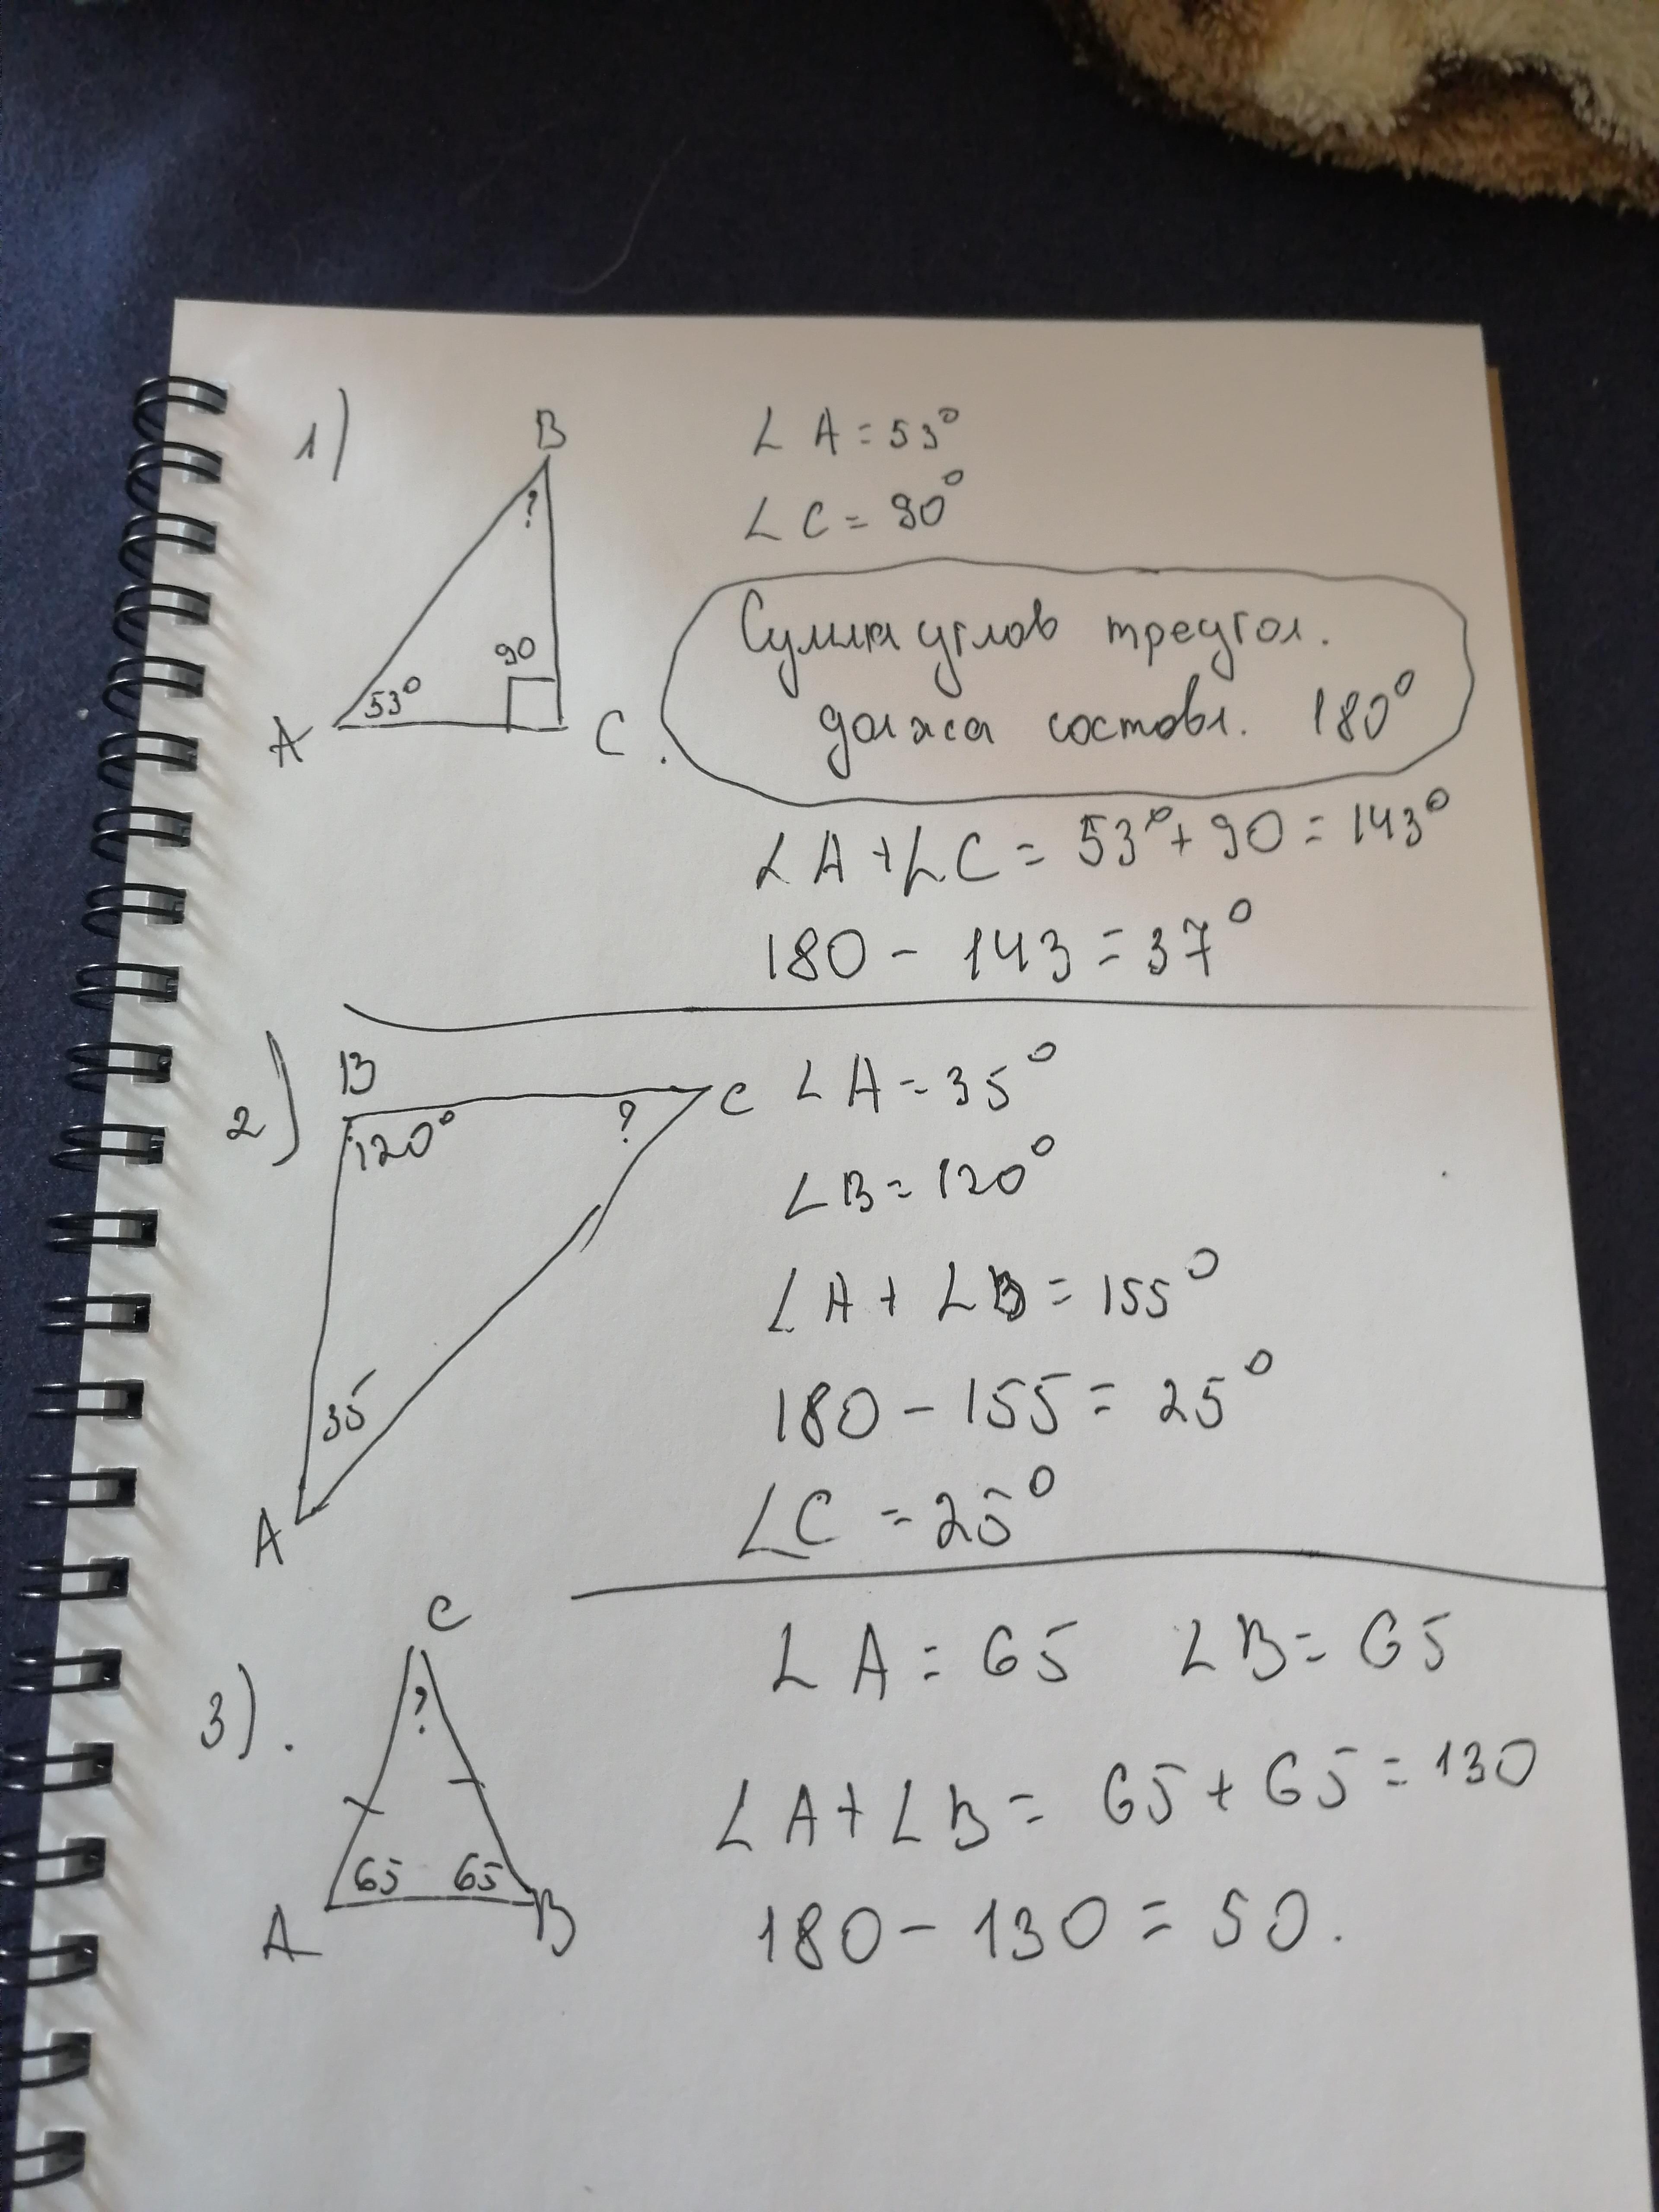 1)
B
?
90
53°
A
C.
∠A = 53°
∠C = 90°
Сумма углов треугол.
должса составл. 180°
∠A + ∠C = 53° + 90 = 143°
180 - 143 = 37°
2)
B
C
120°
?
35
A
∠A = 35°
∠B = 120°
∠A + ∠B = 155°
180 - 155 = 25°
∠C = 25°
3).
C
?
65 65
A
B
∠A = 65 ∠B = 65
∠A + ∠B = 65 + 65 = 130
180 - 130 = 50.